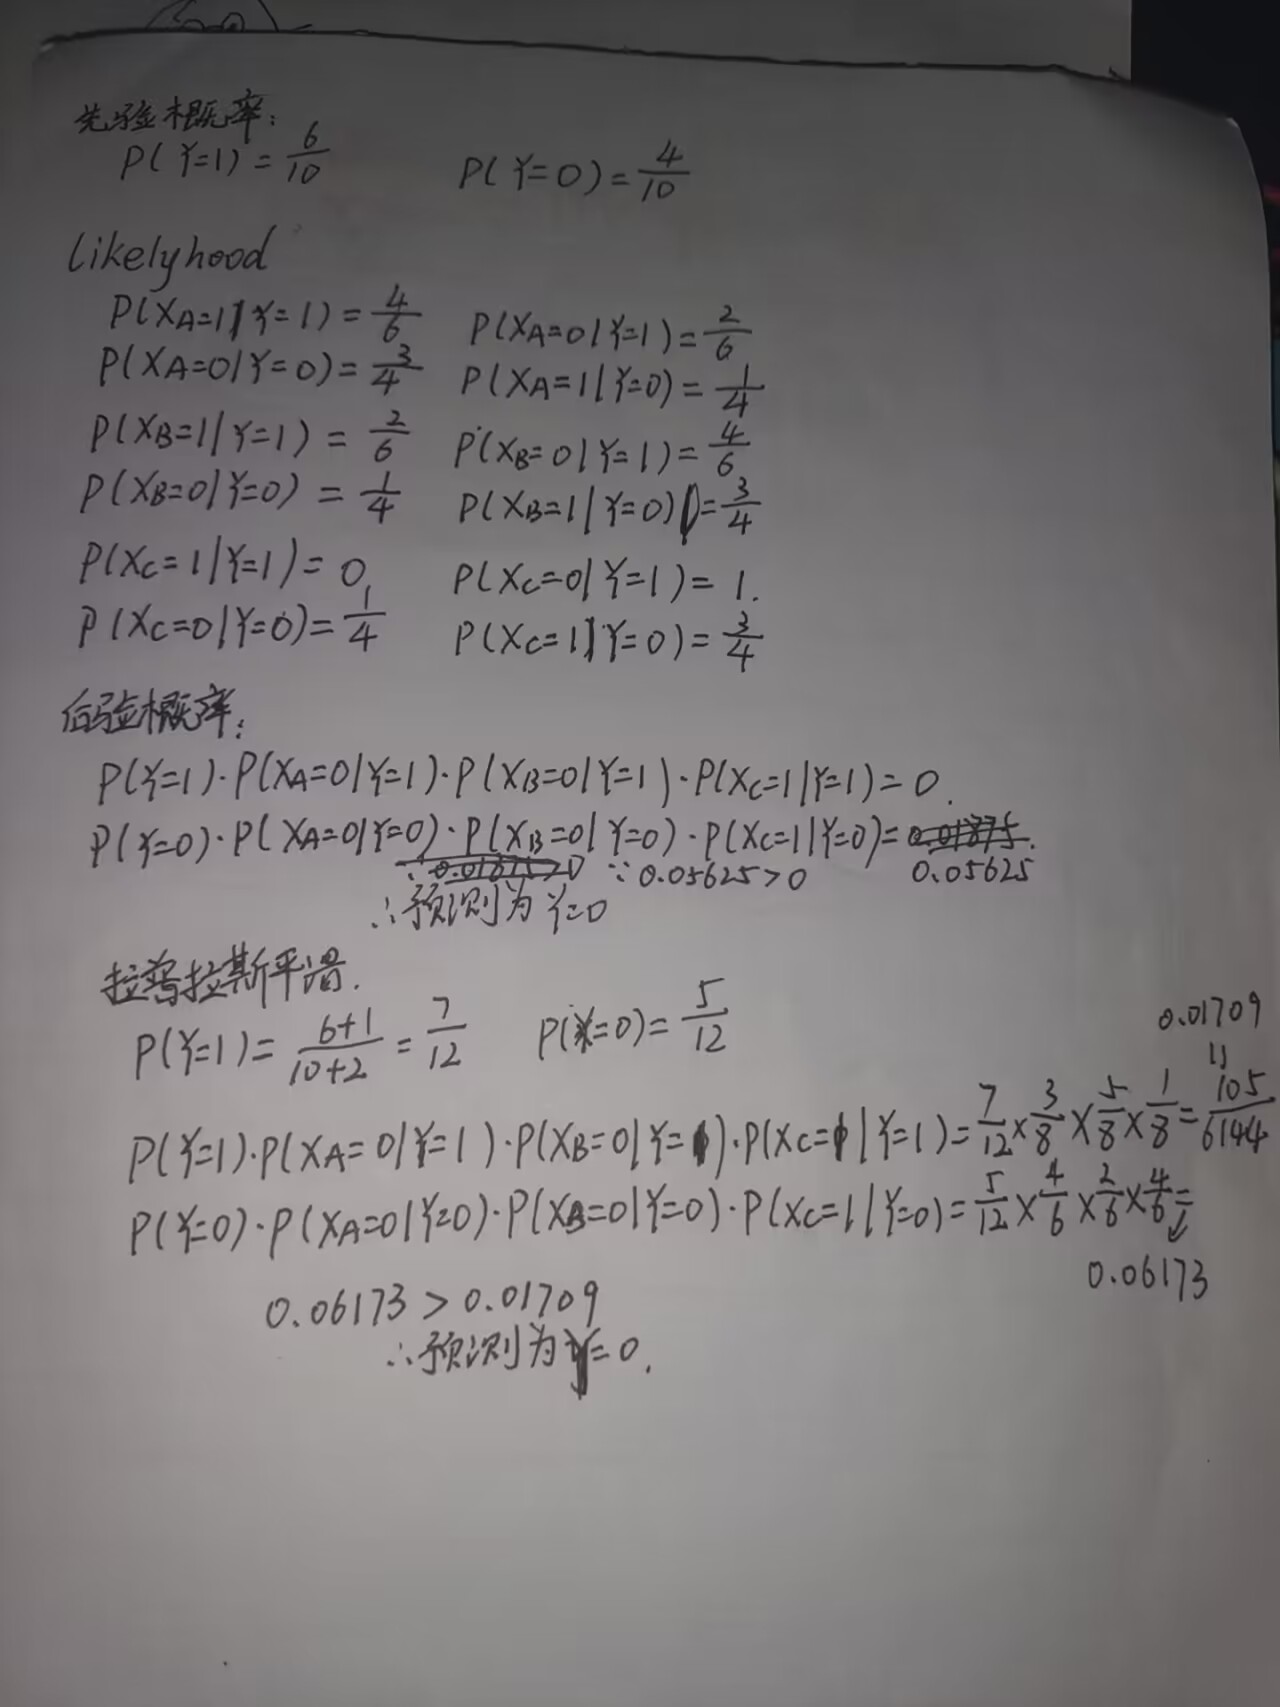 先验概率:
P(Y=1) = 6/10 P(Y=0) = 4/10
Likelyhood
P(XA=1|Y=1) = 4/6 P(XA=0|Y=1) = 2/6
P(XA=0|Y=0) = 3/4 P(XA=1|Y=0) = 1/4
P(XB=1|Y=1) = 2/6 P(XB=0|Y=1) = 4/6
P(XB=0|Y=0) = 1/4 P(XB=1|Y=0) = 3/4
P(XC=1|Y=1) = 0 P(XC=0|Y=1) = 1.
P(XC=0|Y=0) = 1/4 P(XC=1|Y=0) = 3/4
后验概率:
P(Y=1)·P(XA=0|Y=1)·P(XB=0|Y=1)·P(XC=1|Y=1) = 0.
P(Y=0)·P(XA=0|Y=0)·P(XB=0|Y=0)·P(XC=1|Y=0) = 0.01875.
∵ 0.01875>0 ∵ 0.05625>0 0.05625
∴预测为 Y=0
拉普拉斯平滑.
P(Y=1) = (6+1)/(10+2) = 7/12 P(Y=0) = 5/12
0.01709
P(Y=1)·P(XA=0|Y=1)·P(XB=0|Y=1)·P(XC=1|Y=1) = 7/12 × 3/8 × 5/8 × 1/8 = 105/6144
P(Y=0)·P(XA=0|Y=0)·P(XB=0|Y=0)·P(XC=1|Y=0) = 5/12 × 4/6 × 2/6 × 4/6 =
0.06173
0.06173 > 0.01709
∴预测为 Y=0.